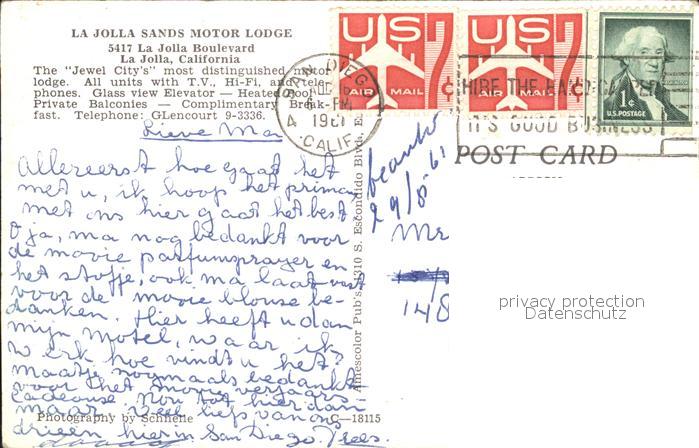 LA JOLLA SANDS MOTOR LODGE
5417 La Jolla Boulevard
La Jolla, California
The "Jewel City's" most distinguished motor
lodge. All units with T.V., Hi-Fi, and tele-
phones. Glass view Elevator — Heated Pool
Private Balconies — Complimentary Break-
fast. Telephone: GLencourt 9-3336.
Lieve Ma
Allereerst hoe gaat het
met u, ik hoop het prima,
met ons hier gaat het best
O ja, ma nog bedankt voor
de mooie parfumsprayer en
het stofje, ook ma laat vast
voor de mooie blouse be-
danken. Hier heeft u dan
mijn motel, waar ik
werk hoe vindt u het?
maatje nogmaals bedankt
voor het mooie verjaars-
cadeouse. Nou tot hier dan
maar veel liefs van ons
drieen hier in San Diego.
Photography by Schnelle
C—18115
Amescolor Pub's, 1310 S. Escondido Blvd., E
SAN DIEGO
PM
1961
4
CALIF.
US 7c
AIR MAIL
US 7c
AIR MAIL
1c
U.S. POSTAGE
HIRE THE
IT'S GOOD BUSINESS
POST CARD
29/8-61
Mr
148
privacy protection
Datenschutz